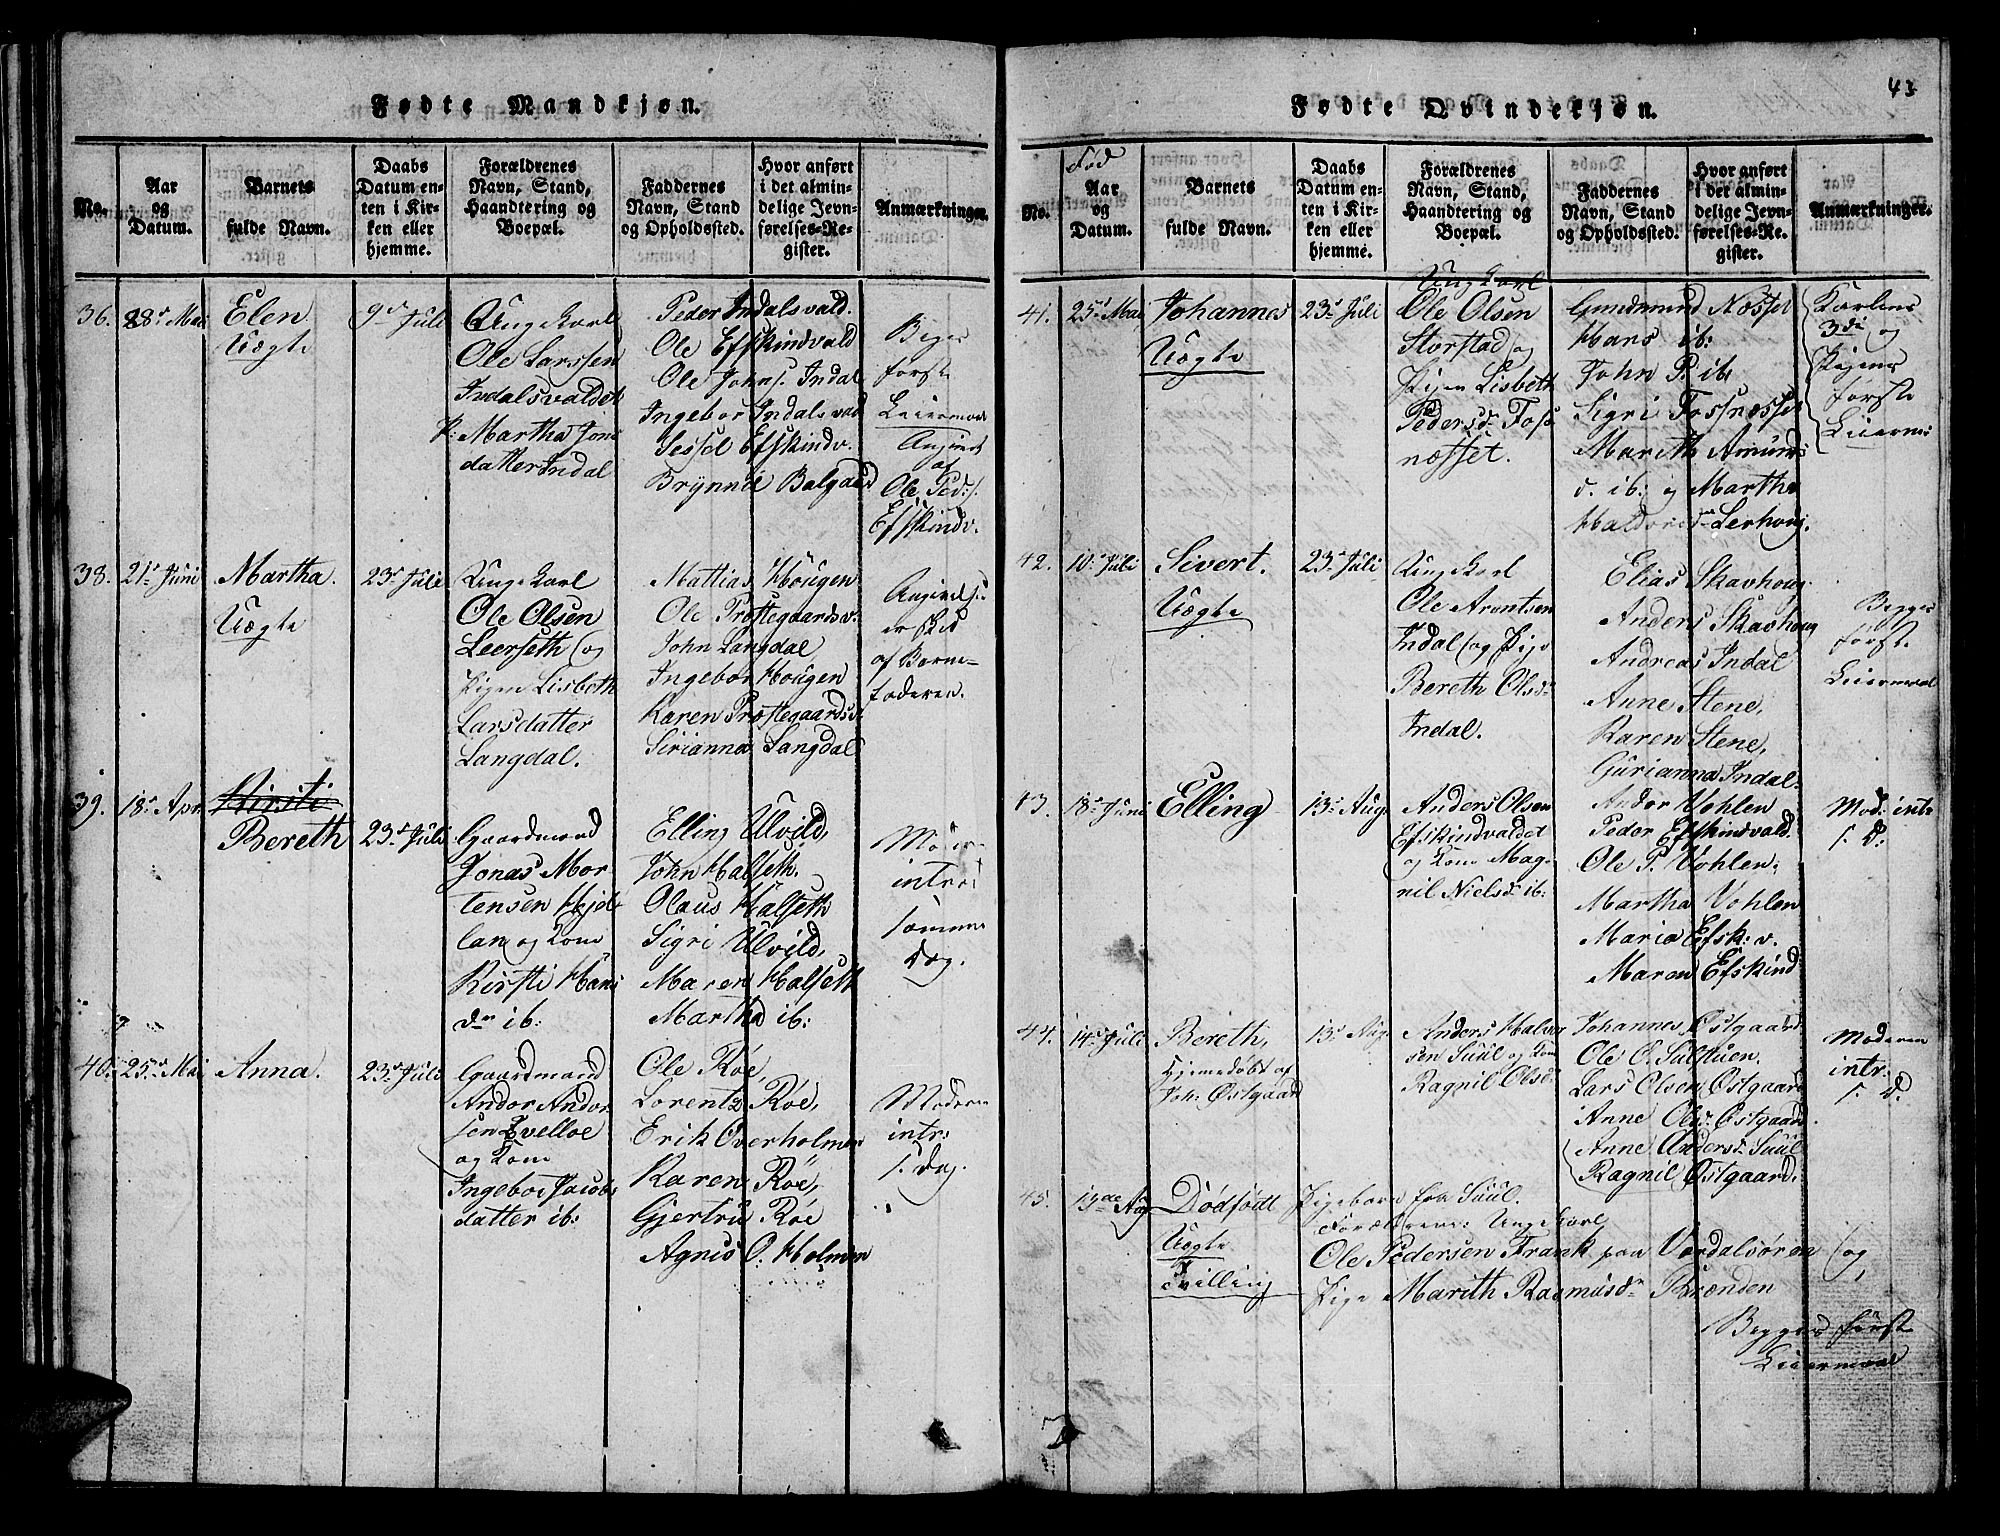 Fødte Mandkjøn.
No.
Aar
og
Datum.
Barnets
fulde Navn.
Daabs
Datum en-
ten i Kir-
ken eller
hjemme.
Forældrenes
Navn, Stand,
Haandtering og
Boepæl.
Faddernes
Navn, Stand
og Opholdssted.
Hvor anført
i det almin-
delige Jevn-
førelses-Re-
gister.
Anmærkninger.
36.
28de Mai
Elen
Uægte
9de Juli
Ungekarl
Ole Larssen
Indalsvaldet
P: Martha Jons
datter Indal
Peder Indalsvald.
Ole Efskindvald
Ole Johns. Indal
Ingebor Indalsvald
Sessel Efskindv.
Brynnil Balgaard
Beges
første
Leiermaal
Angivet
af
Ole Peds.
Efskindv.
38.
21de Juni
Martha.
Uægte
23de Juli
Ungekarl
Ole Olsen
Leerseth og
Pigen Lisbeth
Larsdatter
Langdal.
Mattias Hougen
Ole Præstegaardsv.
John Langdal
Ingebor Hougen
Karen Præstegaardsv.
Sirianna Langdal
Angivels:
er skeet
af Barne-
faderen.
39.
18de Apr.
Kirsti
Bereth
23de Juli
Gaardmand
Jonas Mor
tensen Hjel
lan og Kone
Kirsti Hans
dr ib:
Elling Ulvild,
John Halseth,
Olaus Halseth
Sigri Ulvild,
Maren Halseth
Martha ib:
Moder
intro:
samme
Dag.
40.
25de Mai
Anna.
23de Juli
Gaardmand
Andor Andor
sen Qvelloe
og Kone
Ingebor Jacobs
datter ib:
Ole Røe,
Lorentz Røe,
Erik Overholmen
Karen Røe,
Gjertru Røe
Agnis O. Holmen
Moderen
intr:
s. Dag.
43
Fødte Qvindekjøn.
No.
Fød
Aar
og
Datum.
Barnets
fulde Navn.
Daabs
Datum en-
ten i Kir-
ken eller
hjemme.
Forældrenes
Navn, Stand,
Haandtering og
Boepæl.
Faddernes
Navn, Stand
og Opholdssted.
Hvor anført
i det almin-
delige Jevn-
førelses-Re-
gister.
Anmærkninger.
41.
25de Mai
Johannes
Uægte
23de Juli
Ungkarl
Ole Olsen
Storstad og
Pigen Lisbeth
Pedersd. Foss
næsset.
Gundmund Næsset
Hans ib:
John P. ib.
Sigri Fossnesset
Mareth Amunds
d. ib: og Martha
Haldorsd. Lerhoug.
Karlens
3de og
Pigens
første
Leierm:
42.
10de Juli
Sivert.
Uægte
23de Juli
Ungkarl
Ole Arentsen
Indal og Pige
Bereth Olsd.
Indal.
Elias Skavhoug
Anders Skavhoug
Andreas Indal
Anne Stene,
Karen Stene,
Gurianna Indal.
Begges
første
Leiermaal
43.
18de Juni
Elling
13de Aug.
Anders Olsen
Efskindvaldet
og Kone Mag-
nil Nielsd. ib:
Andor Vohlen
Peder Efskindvald.
Ole P. Vohlen.
Martha Vohlen
Maria Efsk: v.
Maren Efskind
Mod: intr
s. d:
44.
14de Juli
Bereth,
Hjemedøbt af
Joh: Østgaard
13de Aug.
Anders Halvor
sen Suul og Kone
Ragnil Olsd.
Johannes Østgaard
Ole O. Sultuen.
Lars Olsen Østgaard
Anne Olsd. Østgaard.
Anne Andersd. Suul
Ragnil Østgaard.
Moderen
intr:
s. d.
45.
13de Aug
Dødfødt Pigebarn fra Suul.
Uægte
Tvilling
Forældrene: Ungkarl
Ole Pedersen Frank paa Værdalsøren og
Pige Mareth Rasmusdr Brænden
Begges først
Leiermaal